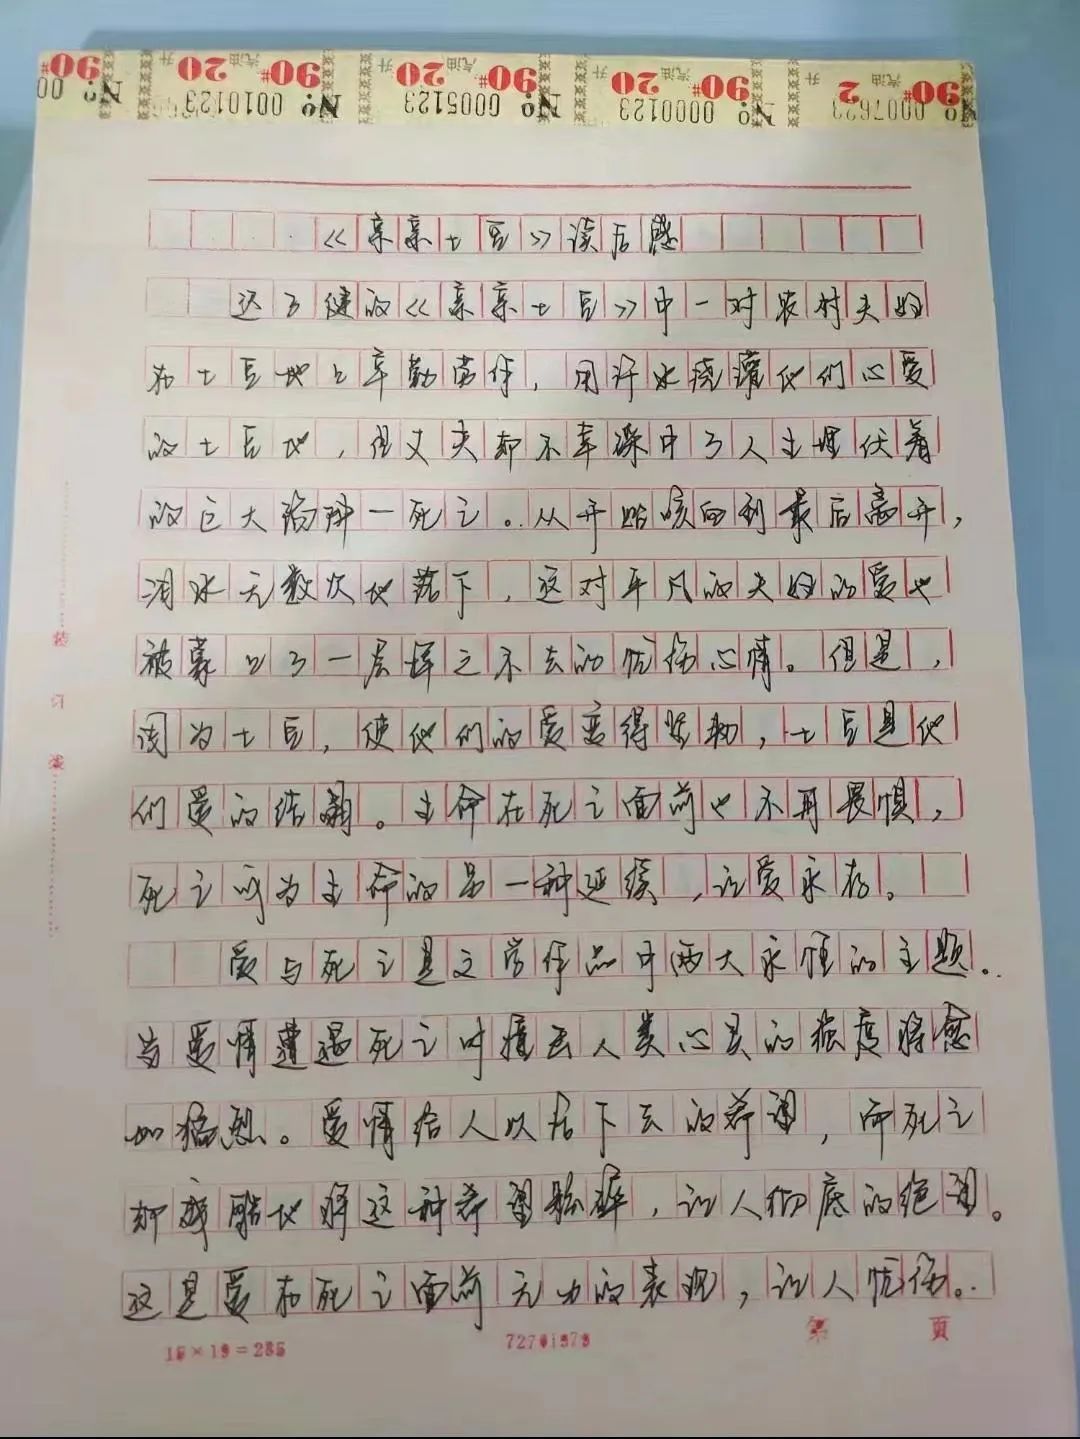 90# No. 0010123 20 汽油 升 90# No. 0005123 20 汽油 升 90# No. 0000123 20 汽油 升 90# No. 0007623 2 汽油 升 90# No.
《亲亲土豆》读后感
迟子健的《亲亲土豆》中一对农村夫妇
在土豆地上辛勤劳作，用汗水浇灌他们心爱
的土豆地，但丈夫却不幸踩中了人生埋伏着
的巨大陷阱一死亡。从开始咳血到最后离开，
泪水无数次地落下，这对平凡的夫妇的爱也
被蒙上了一层挥之不去的忧伤心情。但是，
因为土豆，使他们的爱变得坚韧，土豆是他
们爱的结晶。生命在死亡面前也不再畏惧，
死亡成为生命的另一种延续，让爱永存。
爱与死亡是文学作品中两大永恒的主题。
当爱情遭遇死亡时撞击人类心灵的强度将愈
加猛烈。爱情给人以活下去的希望，而死亡
却残酷地将这种希望粉碎，让人彻底的绝望。
这是爱在死亡面前无力的表现，让人忧伤。
装
订
线
15×19=285
第 页